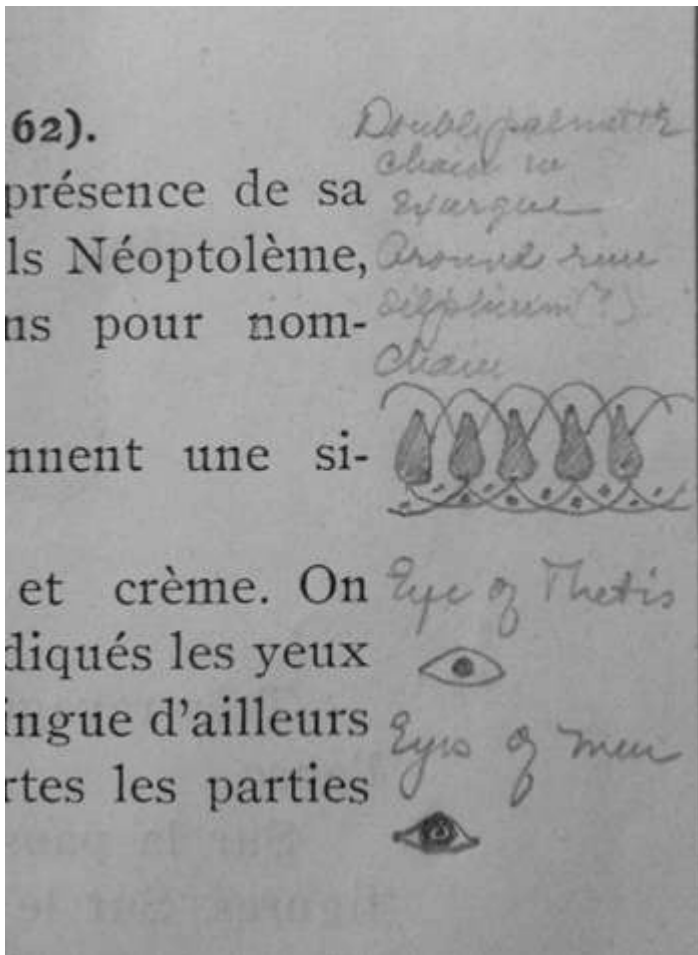 62).
présence de sa
ls Néoptolème,
ns pour nom-
nnent une si-
et crème. On
diqués les yeux
ingue d'ailleurs
rtes les parties
Double palmette
chain in
exergue
Around rim
silphium (?)
chain
Eye of Thetis
Eyes of men